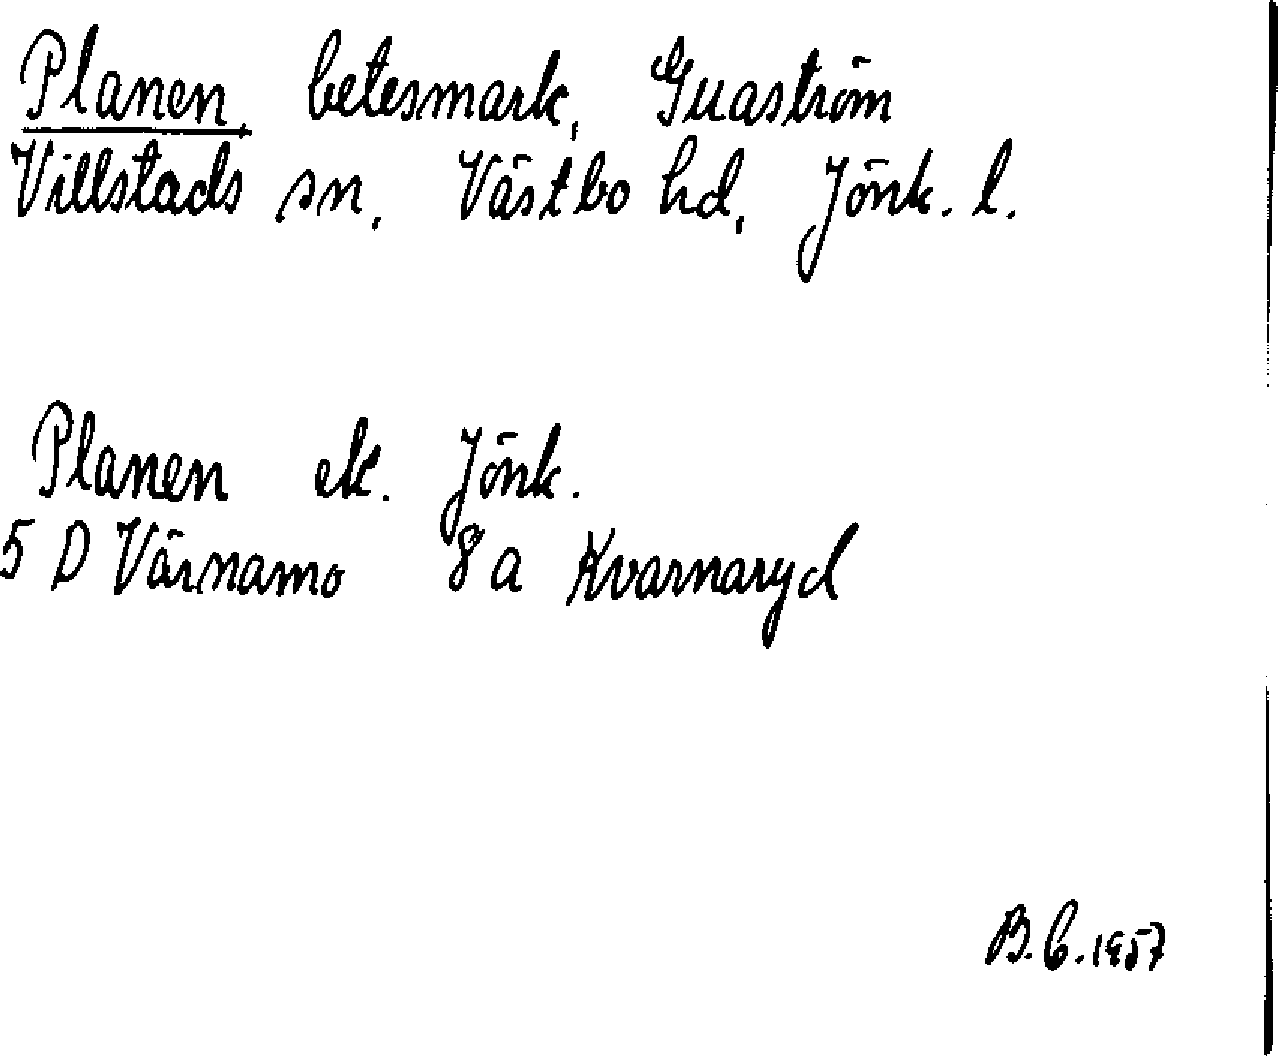 Planen, betesmark, Guaström
Villstads sn, Västbo hd, Jönk. l.
Planen ek. Jönk.
5 D Värnamo 8 a Kvarnaryd
B. C. 1957